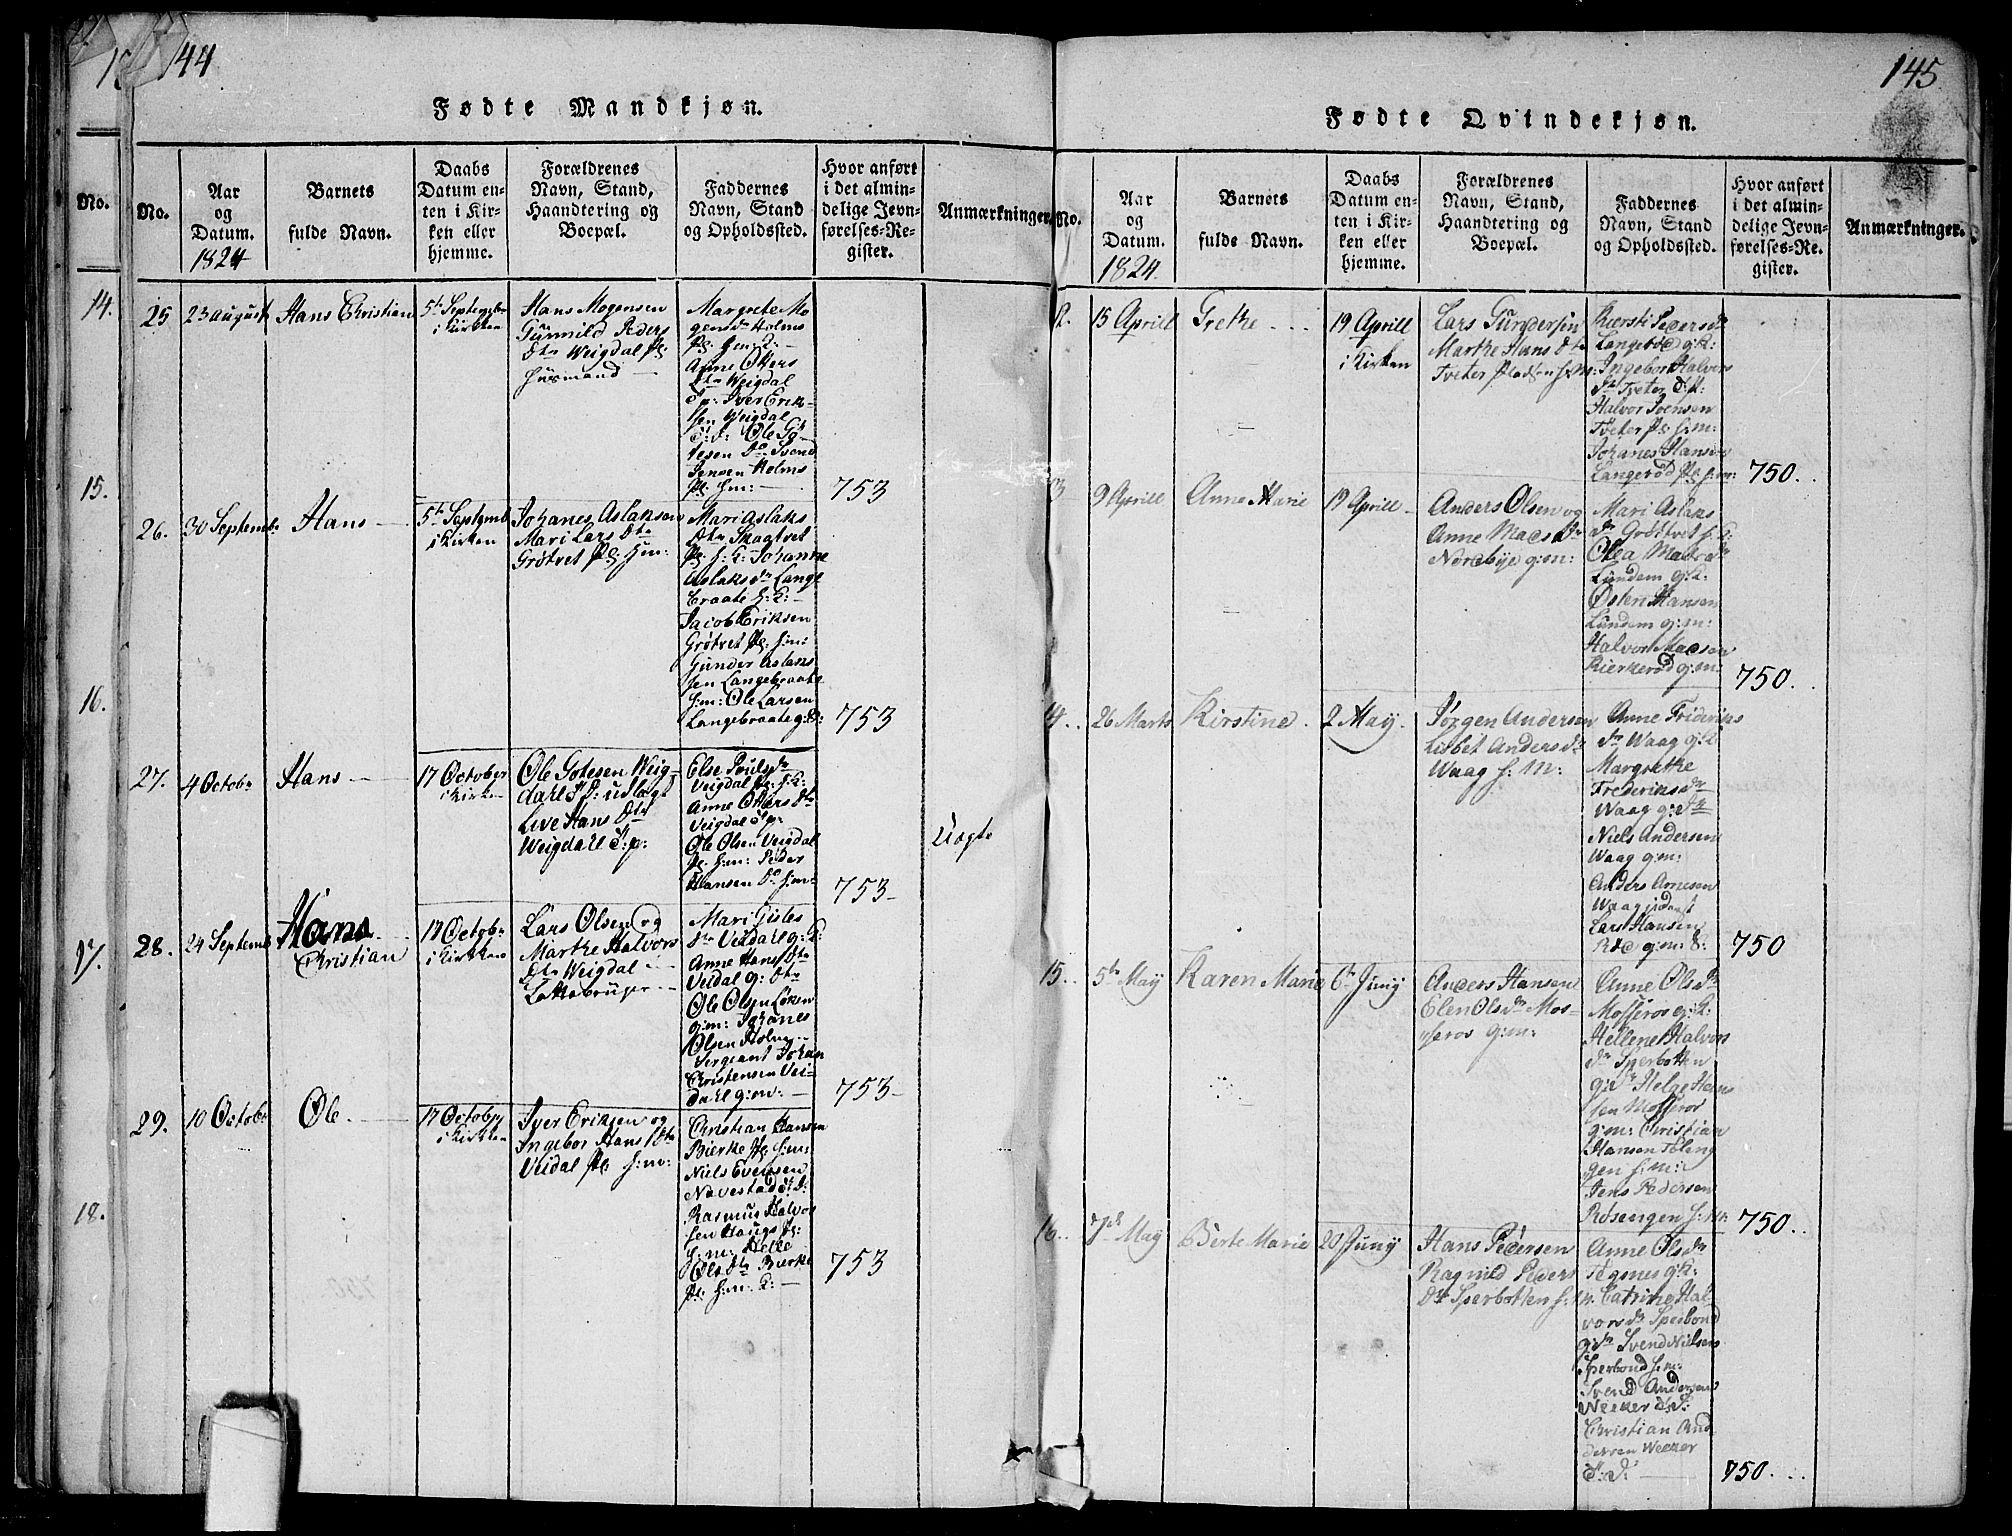 144
Fødte Mandkjøn.
No.
Aar
og
Datum.
1824
Barnets
fulde Navn.
Daabs
Datum en-
ten i Kir-
ken eller
hjemme.
Forældrenes
Navn, Stand,
Haandtering og
Boepæl.
Faddernes
Navn, Stand
og Opholdssted.
Hvor anført
i det almin-
delige Jevn-
førelses-Re-
gister.
Anmærkninger.
25
23 august
Hans Christian
5te September
i Kirken
Hans Mogensen
Gunnild Peders
dtr Weigdal pl:
Huusmand
Margrete Mo
gensdr Holms
pl: h:m: K:
Anne Olters
dtr Weigdal
Iver Erik-
sen Weigdal
Ole Gø-
tesen do Svend
Jensen Holms
pl: h:m:
753
26.
30 Septembr
Hans
5te Septemb
i Kirken
Johanes Aslaksen
Mari Lars dtr
Grøtvet pl: h:m:
Mari Aslaks
dtr Skagtvet
pl: h: K: Johanne
Aslaks dr Lange
braate h: K:
Jacob Eriksen
Grøtvet pl: h:m:
Gunder Aslaks
sen Langebraate
h:m: Ole Larsen
Langebraate g: d:
753
27.
4 Octobr
Hans
17 October
i Kirken
Ole Gotesen Weig-
dahl S: D: udlagt
Live Hans dtr
Weigdahl S: p:
Else Poulsdr
Veigdal pl: h: K:
Anne Olters dtr
Veigdal S:p:
Ole Olsen Veigdal
pl: h:m: Peder
Hansen do h:m:
753
Uægte
28.
24 Septemb
Hans
Christian
17 Octobr
i Kirken
Lars Olsen og
Marthe Halvors
dtr Weigdal
Mari Gisles
dtr Veidahl g: K:
Anne Hans dtr
Veidal g: dtr
Ole Olsen Løken
g:m: Johanes
Olsen Holm
Sergeant Johan
Christensen Vei-
dahl g:m:
753
29.
10 Octobr
Ole
17 October
i Kirken
Iver Eriksen og
Ingebor Hans dtr
Veidal pl: h:m:
Christian Hansen
Bierke pl: h:m:
Niels Evensen
Navestad S: D:
Rasmus Halvor
sen Haugs pl:
h:m: Helle
Ols dtr Bierke
pl: h:m: K:
753
14.
15.
16.
17.
18.
145
Fødte Qvindekjøn.
No.
Aar
og
Datum.
1824.
Barnets
fulde Navn.
Daabs
Datum en-
ten i Kir-
ken eller
hjemme.
Forældrenes
Navn, Stand,
Haandtering og
Boepæl.
Faddernes
Navn, Stand
og Opholdssted.
Hvor anført
i det almin-
delige Jevn-
førelses-Re-
gister.
Anmærkninger.
15 Aprill
Grethe
19 Aprill
i Kirken
Lars Gundersen
Marthe Hans dtr
Tveter pladsen h:m:
Kiersti Pedersdr
Langerød g:K:
Ingebor Halvors
dr Tveter
Halvor Svensen
Tveter pl: h:m:
Johanes Hansen
Langerød pl: h:m:
750.
9 Aprill
Anne Marie
19 Aprill
Anders Olsen og
Anne Mads dr
Nordbye g:m:
Mari Aslaks
dr Grøttvet h: K:
Olea Mads dr
Lundem g: K:
Østen Hansen
Lundem g:m:
Halvor Madsen
Kierkerød g:m:
750.
14.
26 Marts
Kirstine
2 May
Jørgen Andersen
Lisbet Anders dr
Waag h: M:
Anne Frideriks
dr Waag g:K
Margrethe
Frederiks dr
Waag g: dr
Niels Andersen
Waag g:m:
Anders Arnesen
Waag
Lars Hansen
Røe g:m:
750
15.
5te May
Karen Marie
6te Juny
Anders Hansen
Elen Ols dr Mos-
seros g:m:
Anne Ols dr
Mosseros g: K:
Hellene Halvors
dr Sperbotten
g: dr Helge Hans
sen Mosseros
g:m: Christian
Hansen Tolling
gen h:m:
Jens Pedersen
Rosengen h:m:
750.
16.
7de May
Berte Marie
20 Juny
Hans Pedersen
Ragnild Peders
dr Sperbotten h:m:
Anne Ols dr
Tegnes g: K:
Catrine Hal-
vors dr Sperbond
g: dr Svend Nielsen
Sperbond h:m:
Svend Andersen
Weeker
Christian And
dersen Weeker
750.